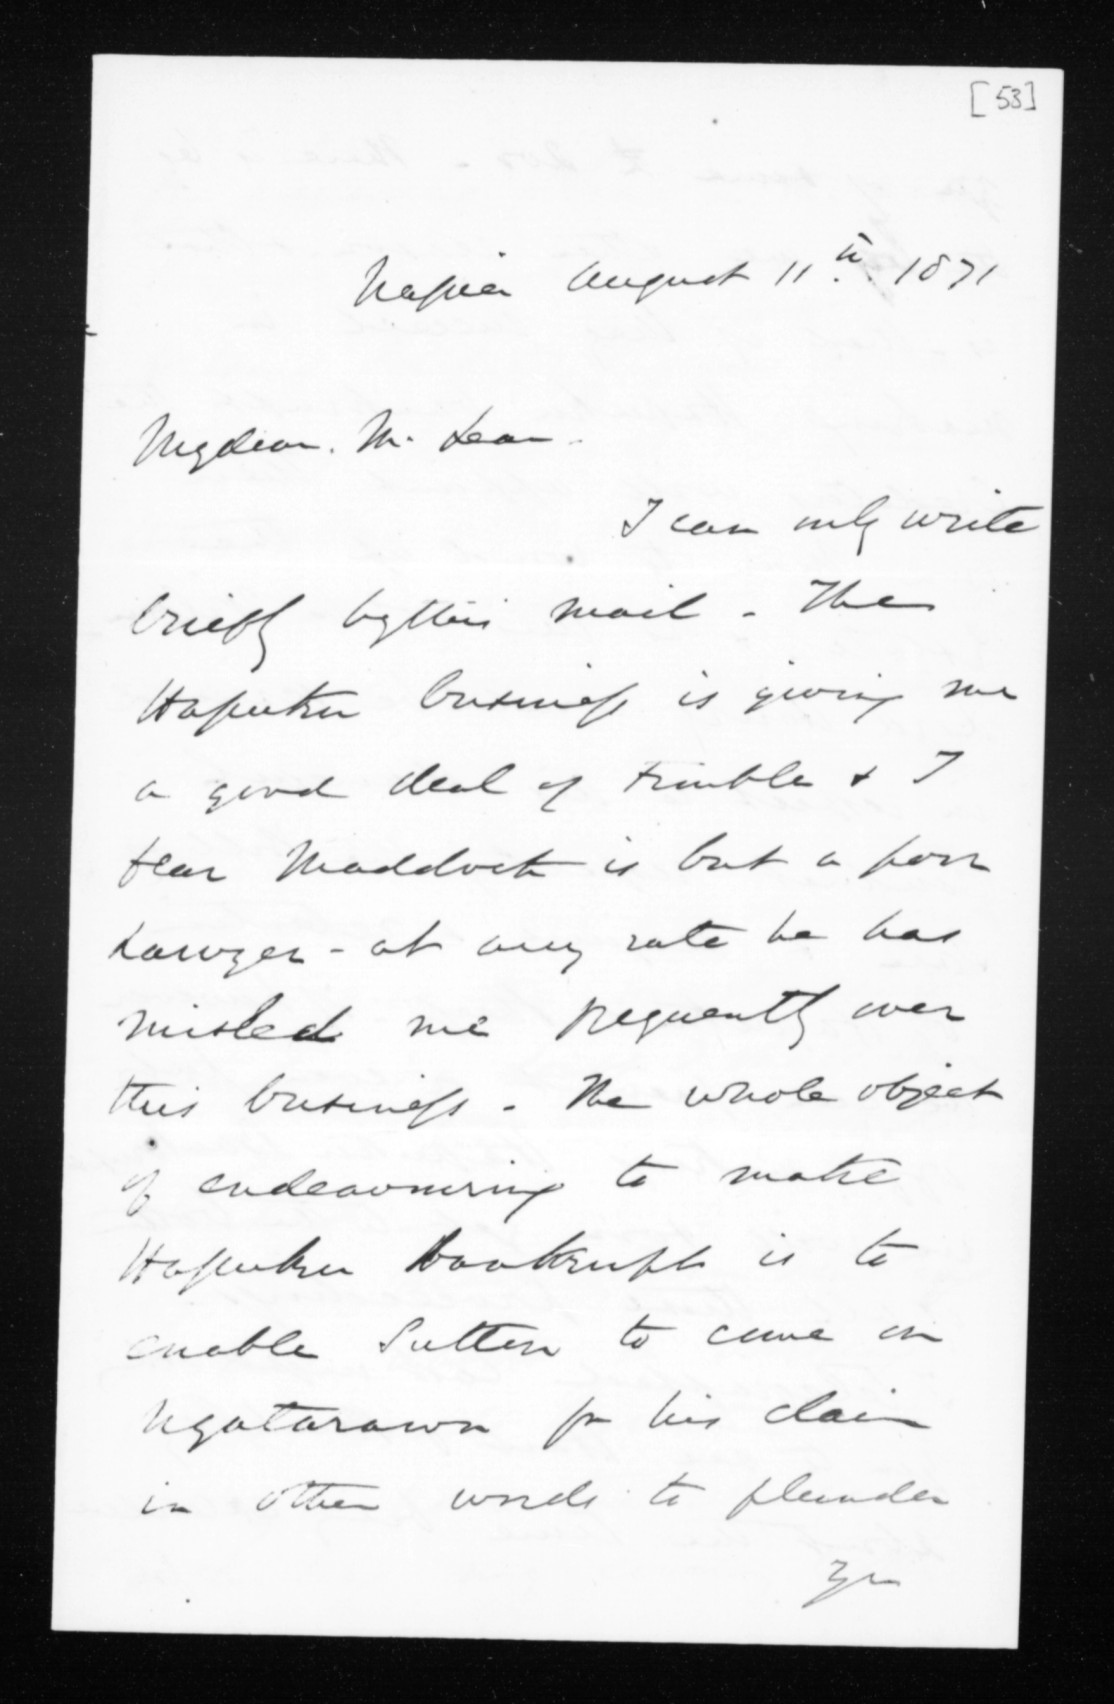 [53]
Napier August 11th. 1871
My dear. Mc. Lean.
I can only write
briefly by this mail - The
Hapuku business is giving me
a good deal of trouble & I
fear Maddock is but a poor
Lawyer - at any rate he has
misled me frequently over
this business. The whole object
of endeavouring to make
Hapuku bankrupt is to
enable Sutton to come on
Ngatarawa for his claim
in other words to plunder
you